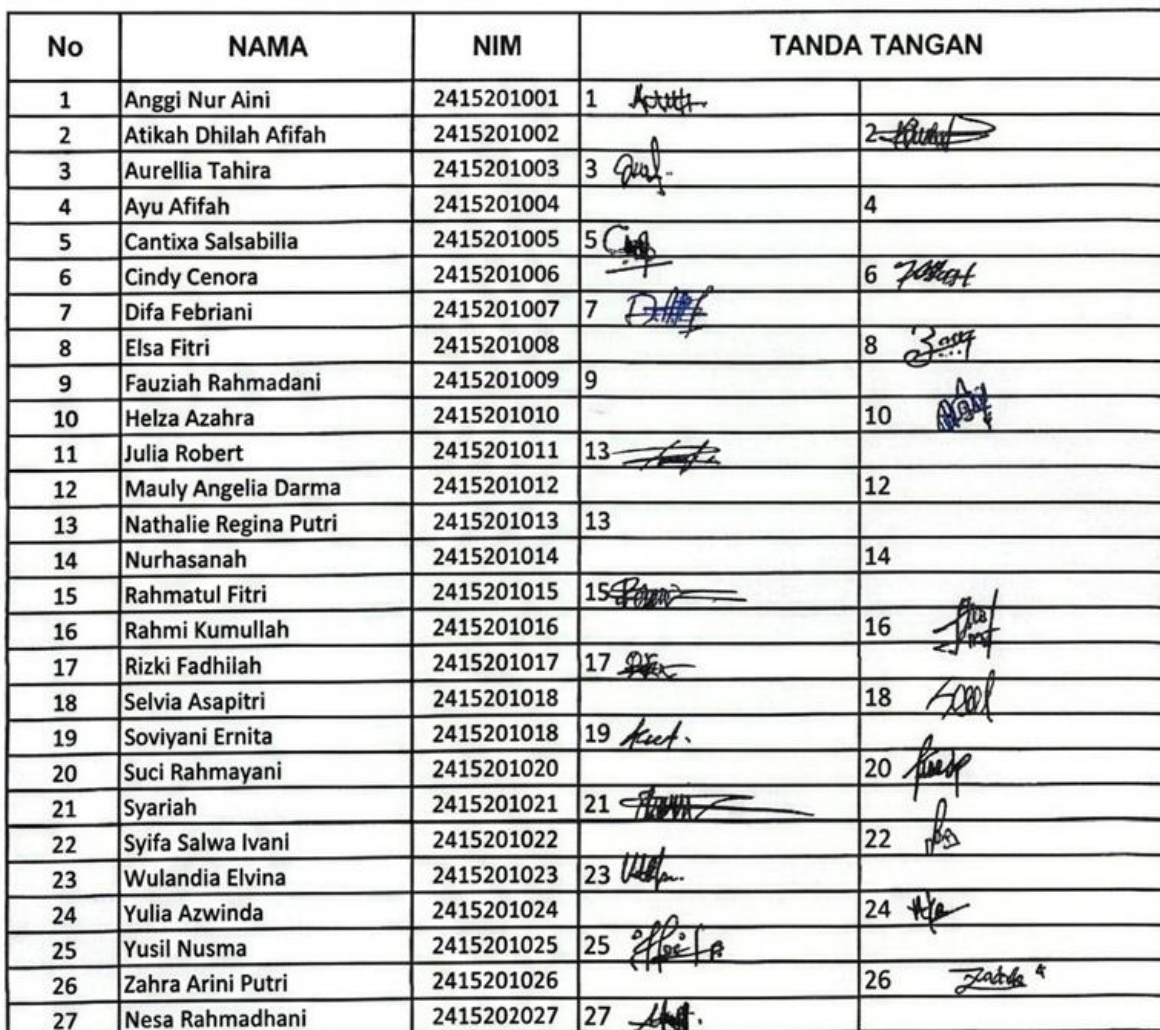 No NAMA NIM TANDA TANGAN
1 Anggi Nur Aini 2415201001 1
2 Atikah Dhilah Afifah 2415201002 2
3 Aurellia Tahira 2415201003 3
4 Ayu Afifah 2415201004 4
5 Cantixa Salsabilla 2415201005 5
6 Cindy Cenora 2415201006 6
7 Difa Febriani 2415201007 7
8 Elsa Fitri 2415201008 8
9 Fauziah Rahmadani 2415201009 9
10 Helza Azahra 2415201010 10
11 Julia Robert 2415201011 13
12 Mauly Angelia Darma 2415201012 12
13 Nathalie Regina Putri 2415201013 13
14 Nurhasanah 2415201014 14
15 Rahmatul Fitri 2415201015 15
16 Rahmi Kumullah 2415201016 16
17 Rizki Fadhilah 2415201017 17
18 Selvia Asapitri 2415201018 18
19 Soviyani Ernita 2415201018 19
20 Suci Rahmayani 2415201020 20
21 Syariah 2415201021 21
22 Syifa Salwa Ivani 2415201022 22
23 Wulandia Elvina 2415201023 23
24 Yulia Azwinda 2415201024 24
25 Yusil Nusma 2415201025 25
26 Zahra Arini Putri 2415201026 26
27 Nesa Rahmadhani 2415202027 27